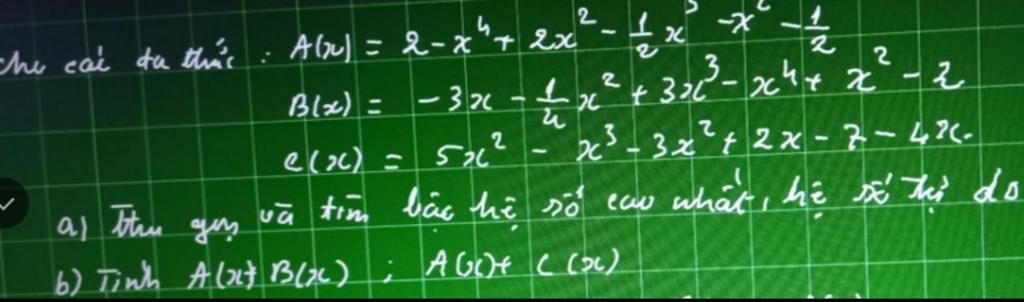 cho các đa thức : A(x) = 2 - x⁴ + 2x² - 1/2 x³ - x² - 1/2
B(x) = - 3x - 1/4 x² + 3x³ - x⁴ + x² - 2
C(x) = 5x² - x³ - 3x² + 2x - 7 - 4x.
a) Thu gọn và tìm bậc hệ số cao nhất, hệ số tự do
b) Tính A(x) + B(x) ; A(x) + C(x)